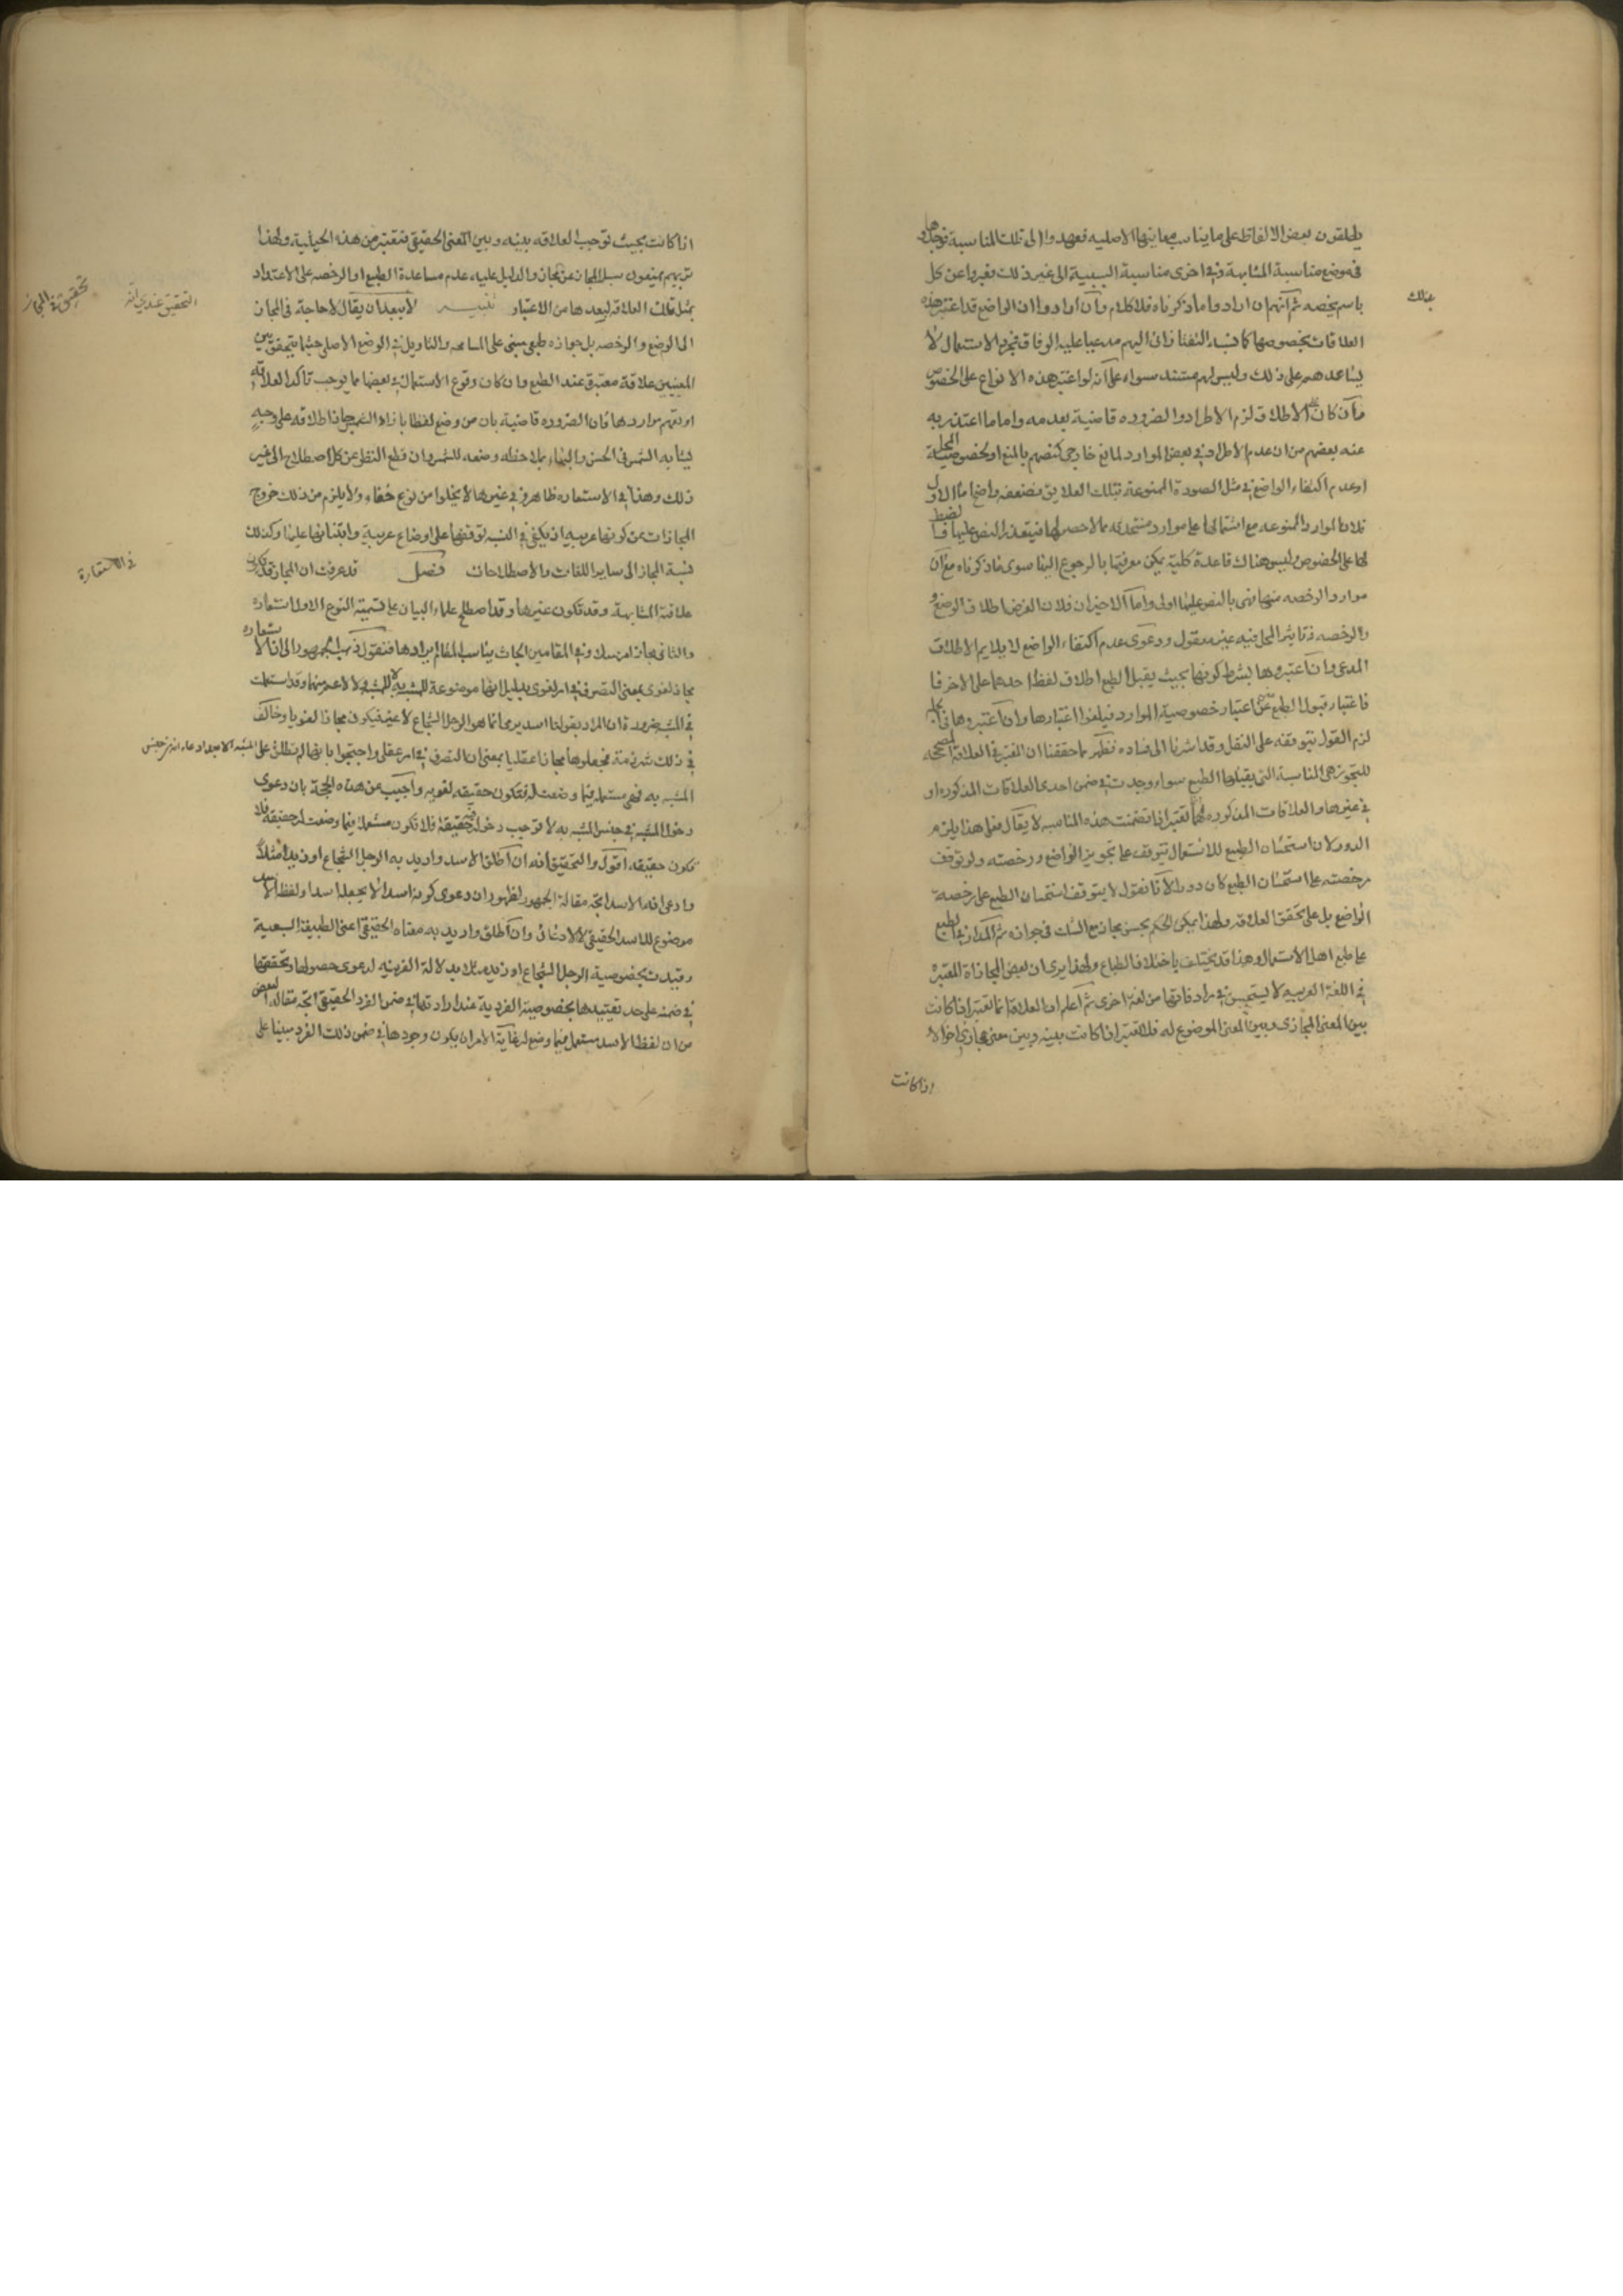 يطلقون بعض الالفاظ على ما يناسب معانيها الاصليه فعهدوا الى تلك المناسبة فوجدوها
فى موضع مناسبة المشابهة وفى اخرى مناسبة السببية الى غير ذلك فعبروا عن كل
باسم يخصه ثم انهم ان ارادوا ما ذكرناه فلا كلام وان ارادوا ان الواضع قد اعتبر هذه
بذلك
العلاقات بخصوصها كما نسبه التفتازانى اليهم مدعيا عليه الوفاق فمجرد الاستعمال لا
يساعدهم على ذلك وليس لهم مستند سواه على انه لو اعتبر هذه الانواع على الخصوص
فان كان على الاطلاق لزم الاطراد والضروره قاضية بعدمه واما ما اعتذر به
عنه بعضهم من ان عدم الاطراد فى بعض الموارد لمانع خارجى كنصهم بالمنع او لخصوصية المحل
او عدم اكتفاء الواضع فى مثل الصورة الممنوعة بتلك العلايق فضعفه واضح اما الاول
فلان الموارد الممنوعه مع اشتمالها على موارد متجددة مما لا حصر لها فيتعذر النص عليها
لها على الخصوص وليس هناك قاعدة كلية يمكن معرفتها بالرجوع اليها سوى ما ذكرناه مع ان
موارد الرخصه منها فهى بالنص عليها اولى واما الاخيران فلان الغرض اطلاق الوضع و
والرخصه فتاثير المحل فيه غير معقول ودعوى عدم اكتفاء الواضع لا يلايم الاطلاق
المدعى وان اعتبروها بشرط كونها بحيث يقبل الطبع اطلاق لفظ احدهما على الاخر فا
فاعتبار قبول الطبع يغنى عن اعتبار خصوصية الموارد فيلغوا اعتبارها وان اعتبروها فى الجملة
لزم القول بتوقفه على النقل وقد اشرنا الى فساده فظهر مما حققنا ان المعتبر فى العلاقة المصححه
للتجوز هى المناسبة التى يقبلها الطبع سواء وجدت فى ضمن احدى العلاقات المذكوره او
فى غيرها والعلاقات المذكوره انما تعتبر اذا تضمنت هذه المناسبه لا يقال فعلى هذا يلزم
الدور لان استحسان الطبع للاستعمال يتوقف على تجويز الواضع ورخصته ولو توقف
رخصته على استحسان الطبع كان دورا لانا نقول لا يتوقف استحسان الطبع على رخصة
الواضع بل على تحقق العلاقه ولهذا يمكن الحكم بحسن مجاز مع الشك فى جوازه ثم المدار فى الطبع
على طبع اهل الاستعمال وهذا قد يختلف باختلاف الطباع ولهذا يرى ان بعض المجازات المعتبرة
فى اللغة العربيه لا يستحسن فى مرادفاتها من لغة اخرى ثم اعلم ان العلاقة انما تعتبر اذا كانت
بين المعنى المجازى وبين المعنى الموضوع له فلا تعتبر اذا كانت بينه وبين معنى مجازى اخر الا
اذا كانت
اذا كانت بحيث توجب العلاقه بينه وبين المعنى الحقيقى فتعتبر من هذه الحيثية ولهذا
تريهم يمنعون سبك المجاز عن مجاز والدليل عليه عدم مساعدة الطبع او الرخصه على الاعتداد
بمثل تلك العلاقه لبعدها من الاعتبار تنبيـــه لا يبعد ان يقال لا حاجة فى المجاز
التحقيق عندى انه
تحقيق فى المجاز
الى الوضع والرخصه بل جوازه طبعى مبنى على المسامحه والتاويل فى الوضع الاصلى حيثما يتحقق بين
المعنيين علاقة معتبرة عند الطبع وان كان وقوع الاستعمال فى بعضها مما يوجب تاكد العلاقة
او تعميم مواردها فان الضروره قاضية بان من وضع لفظا بازاء الشمس جاز اطلاقه على وجه
يشابه الشمس فى الحسن والبهاء بملاحظه وضعه للشمس وان قطع النظر عن كل اصطلاح الى غير
ذلك وهذا فى الاستعاره ظاهر وفى غيرها لا يخلوا من نوع خفاء ولا يلزم من ذلك خروج
المجازات عن كونها عربيه اذ يكفى فى النسبه توقفها على اوضاع عربية وابتنائها عليها وكذلك
نسبة المجاز الى ساير اللغات والاصطلاحات فصل قد عرفت ان المجاز قد يكون
فى الاستعارة
علاقته المشابهة وقد تكون غيرها وقد اصطلح علماء البيان على تسمية النوع الاول استعارة
والثانى مجازا مرسلا وفى المقامين ابحاث يناسب المقام ايرادها فنقول ذهب الجمهور الى ان الاستعاره
مجاز لغوى بمعنى التصرف فى امر لغوى بدليل انها موضوعة للمشبه به لا للمشبه ولا لاعم منهما وقد استعملت
فى المشبه ضرورة ان المراد بقولنا اسد يرمى انما هو الرجل الشجاع لا غير فيكون مجازا لغويا وخالف
فى ذلك شرذمة فجعلوها مجازا عقليا بمعنى ان التصرف فى امر عقلى واحتجوا بانها لم تطلق على المشبه الا بعد ادعاء انه من جنس
المشبه به فهى مستعملة فيما وضعت له فتكون حقيقه لغويه واجيب عن هذه الحجة بان دعوى
دخول المشبه فى جنس المشبه به لا توجب دخوله فيه حقيقة فلا تكون مستعملة فيما وضعت له حقيقه فلا
تكون حقيقه اقول والتحقيق انه ان اطلق الاسد واريد به الرجل الشجاع او زيد مثلا
وادعى انه الاسد اتجه مقالة الجمهور لظهور ان دعوى كونه اسدا لا يجعله اسدا ولفظ الاسد
موضوع للاسد الحقيقى لا الادعائى وان اطلق واريد به معناه الحقيقى اعنى الطبيعة السبعية
وقيدت بخصوصية الرجل الشجاع او زيد مثلا بدلالة القرينه لدعوى حصولها وتحققها
فى ضمنه على حد تقييدها بخصوصية الفردية عند ارادتها فى ضمن الفرد الحقيقى اتجه مقالة البعض
من ان لفظ الاسد مستعمل فيما وضع له غاية الامر ان يكون وجودها فى ضمن ذلك الفرد مبنيا على